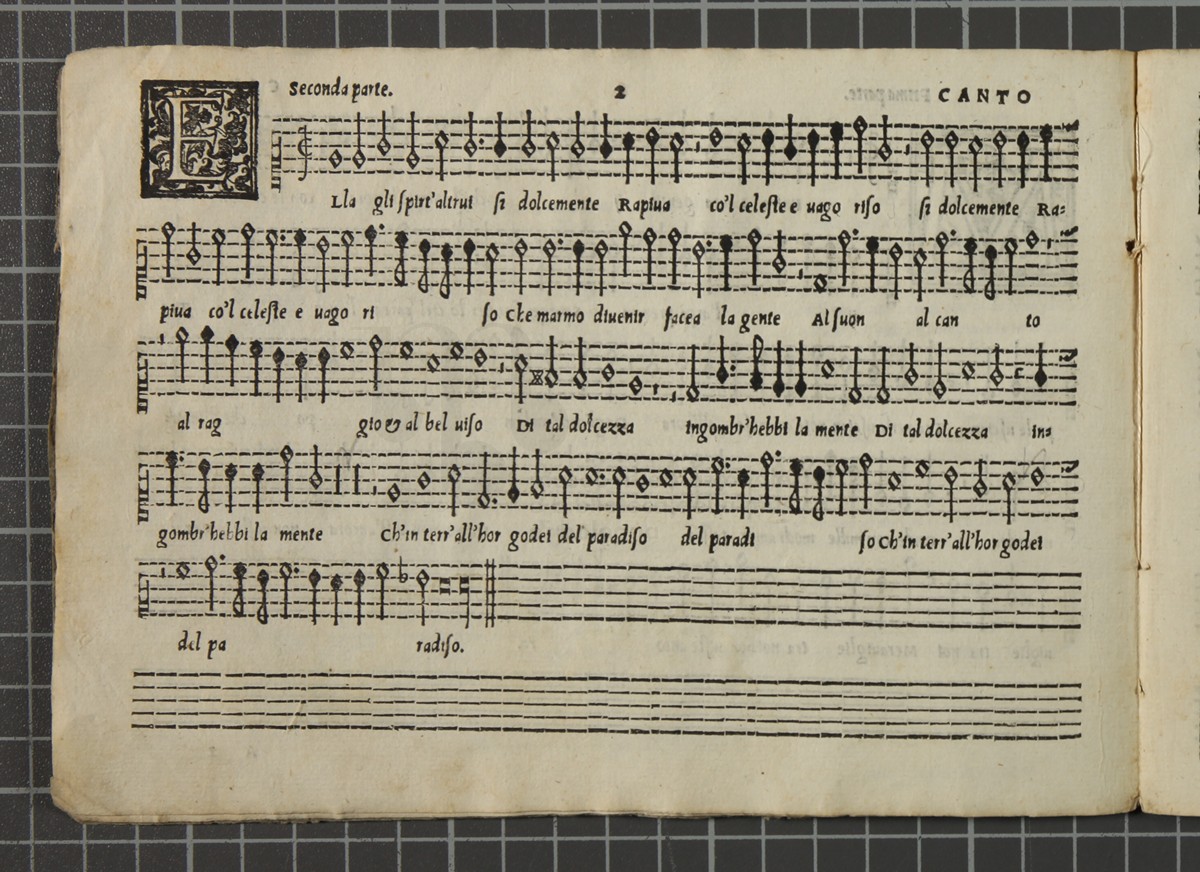 Seconda parte. 2 CANTO
ELla gli spirt'altrui si dolcemente Rapiua co'l celeste e uago riso si dolcemente Ra=
piua co'l celeste e uago ri so Che marmo diuenir facea la gente Al suon al can to
al rag gio & al bel uiso Di tal dolcezza ingombr'hebbi la mente Di tal dolcezza in=
gombr'hebbi la mente Ch'in terr'all'hor godei del paradiso del paradi so Ch'in terr'all'hor godei
del pa radiso.